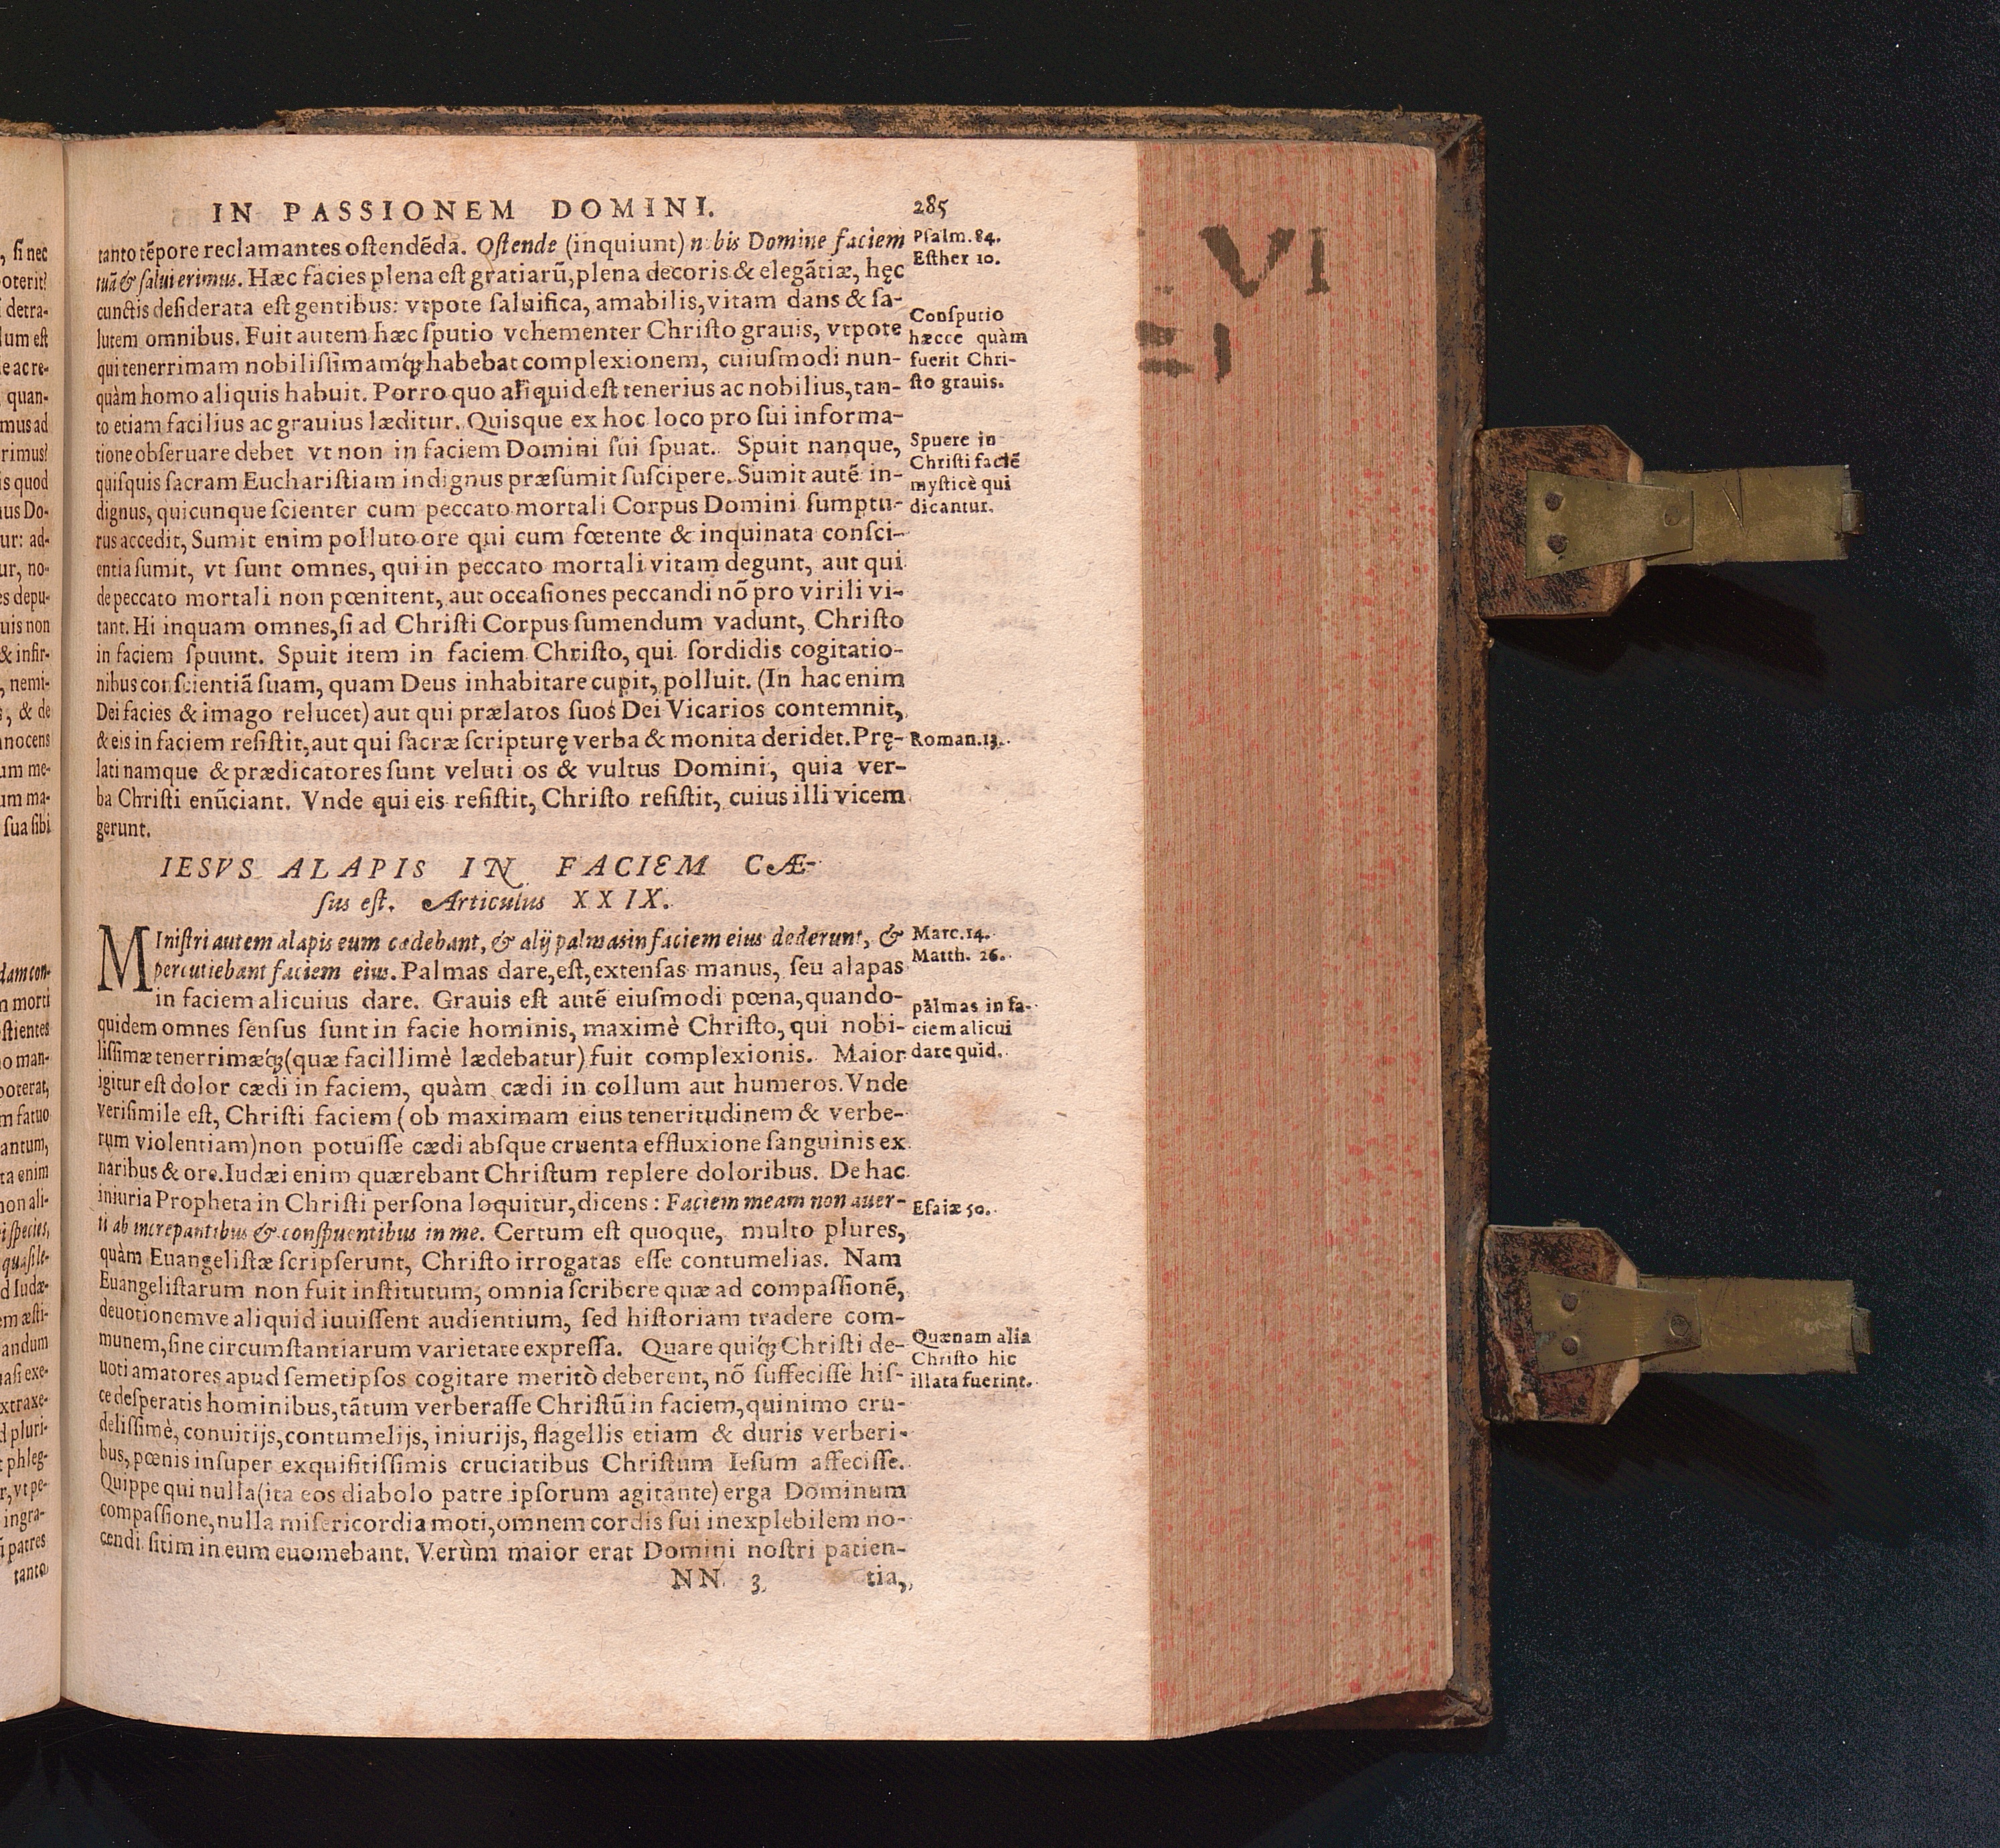 IN PASSIONEM DOMINI. 285
tanto tẽpore reclamantes oſtendẽda. Oſtende (inquiunt) nobis Domine faciem
tuã & ſalui erimus. Hæc facies plena eſt gratiarũ, plena decoris & elegãtiæ, hęc
cunctis deſiderata eſt gentibus: vtpote ſaluifica, amabilis, vitam dans & ſa-
lutem omnibus. Fuit autem hæc ſputio vehementer Chriſto grauis, vtpote
qui tenerrimam nobiliſsimamq́ꝫ habebat complexionem, cuiuſmodi nun-
quàm homo aliquis habuit. Porro quo aliquid eſt tenerius ac nobilius, tan-
to etiam facilius ac grauius læditur. Quisque ex hoc loco pro ſui informa-
tione obſeruare debet vt non in faciem Domini ſui ſpuat. Spuit nanque,
quiſquis ſacram Euchariſtiam indignus præſumit ſuſcipere. Sumit autẽ in-
dignus, quicunque ſcienter cum peccato mortali Corpus Domini ſumptu-
rus accedit, Sumit enim polluto ore qui cum fœtente & inquinata conſci-
entia ſumit, vt ſunt omnes, qui in peccato mortali vitam degunt, aut qui
de peccato mortali non pœnitent, aut occaſiones peccandi nõ pro virili vi-
tant. Hi inquam omnes, ſi ad Chriſti Corpus ſumendum vadunt, Chriſto
in faciem ſpuunt. Spuit item in faciem Chriſto, qui ſordidis cogitatio-
nibus conſcientiã ſuam, quam Deus inhabitare cupit, polluit. (In hac enim
Dei facies & imago relucet) aut qui prælatos ſuos Dei Vicarios contemnit,
& eis in faciem reſiſtit, aut qui ſacræ ſcripturę verba & monita deridet. Prę-
lati namque & prædicatores ſunt veluti os & vultus Domini, quia ver-
ba Chriſti enũciant. Vnde qui eis reſiſtit, Chriſto reſiſtit, cuius illi vicem
gerunt.
IESVS ALAPIS IN FACIEM CÆ-
ſus eſt. Articulus XXIX.
MIniſtri autem alapis eum cædebant, & alij palmas in faciem eius dederunt, &
percutiebant faciem eius. Palmas dare, eſt, extenſas manus, ſeu alapas
in faciem alicuius dare. Grauis eſt autẽ eiuſmodi pœna, quando-
quidem omnes ſenſus ſunt in facie hominis, maximè Chriſto, qui nobi-
liſsimæ tenerrimæq́ꝫ (quæ facillimè lædebatur) fuit complexionis. Maior
igitur eſt dolor cædi in faciem, quàm cædi in collum aut humeros. Vnde
veriſimile eſt, Chriſti faciem (ob maximam eius teneritudinem & verbe-
rum violentiam) non potuiſſe cædi abſque cruenta effluxione ſanguinis ex
naribus & ore. Iudæi enim quærebant Chriſtum replere doloribus. De hac
iniuria Propheta in Chriſti perſona loquitur, dicens: Faciem meam non auer-
ti ab increpantibus & conſpuentibus in me. Certum eſt quoque, multo plures,
quàm Euangeliſtæ ſcripſerunt, Chriſto irrogatas eſſe contumelias. Nam
Euangeliſtarum non fuit inſtitutum, omnia ſcribere quæ ad compaſsionẽ,
deuotionemve aliquid iuuiſſent audientium, ſed hiſtoriam tradere com-
munem, ſine circumſtantiarum varietate expreſſa. Quare quiq́ꝫ Chriſti de-
uoti amatores apud ſemetipſos cogitare meritò deberent, nõ ſuffeciſſe hiſ-
ce deſperatis hominibus, tãtum verberaſſe Chriſtũ in faciem, quinimo cru-
deliſsimè, conuitijs, contumelijs, iniurijs, flagellis etiam & duris verberi-
bus, pœnis inſuper exquiſitiſsimis cruciatibus Chriſtum Ieſum affeciſſe.
Quippe qui nulla (ita eos diabolo patre ipſorum agitante) erga Dominum
compaſsione, nulla miſericordia moti, omnem cordis ſui inexplebilem no-
cendi ſitim in eum euomebant. Verùm maior erat Domini noſtri patien-
NN 3 tia,
Pſalm. 84.
Eſther 10.
Conſputio
hæcce quàm
fuerit Chri-
ſto grauis.
Spuere in
Chriſti faciẽ
myſticè qui
dicantur.
Roman. 13.
Marc. 14.
Matth. 26.
palmas in fa-
ciem alicui
dare quid.
Eſaiæ 50.
Quænam alia
Chriſto hic
illata fuerint.
VI
, ſi nec
poterit?
detra-
lum eſt
quan-
mus ad
rimus?
is quod
us Do-
ur: ad-
ur, no-
es depu-
uis non
& infir-
, nemi-
, & de
nnocens
um me-
um ma-
ſua ſibi
dam con-
morti
ſtientes
o man-
poterat,
m fatuo
antum,
ta enim
non ali-
ſpecies,
quaſi le-
d Iudæ-
em æſti-
andum
aſi exe-
xtraxe-
d pluri-
phleg-
r, vt pe-
ingra-
patres
tanto